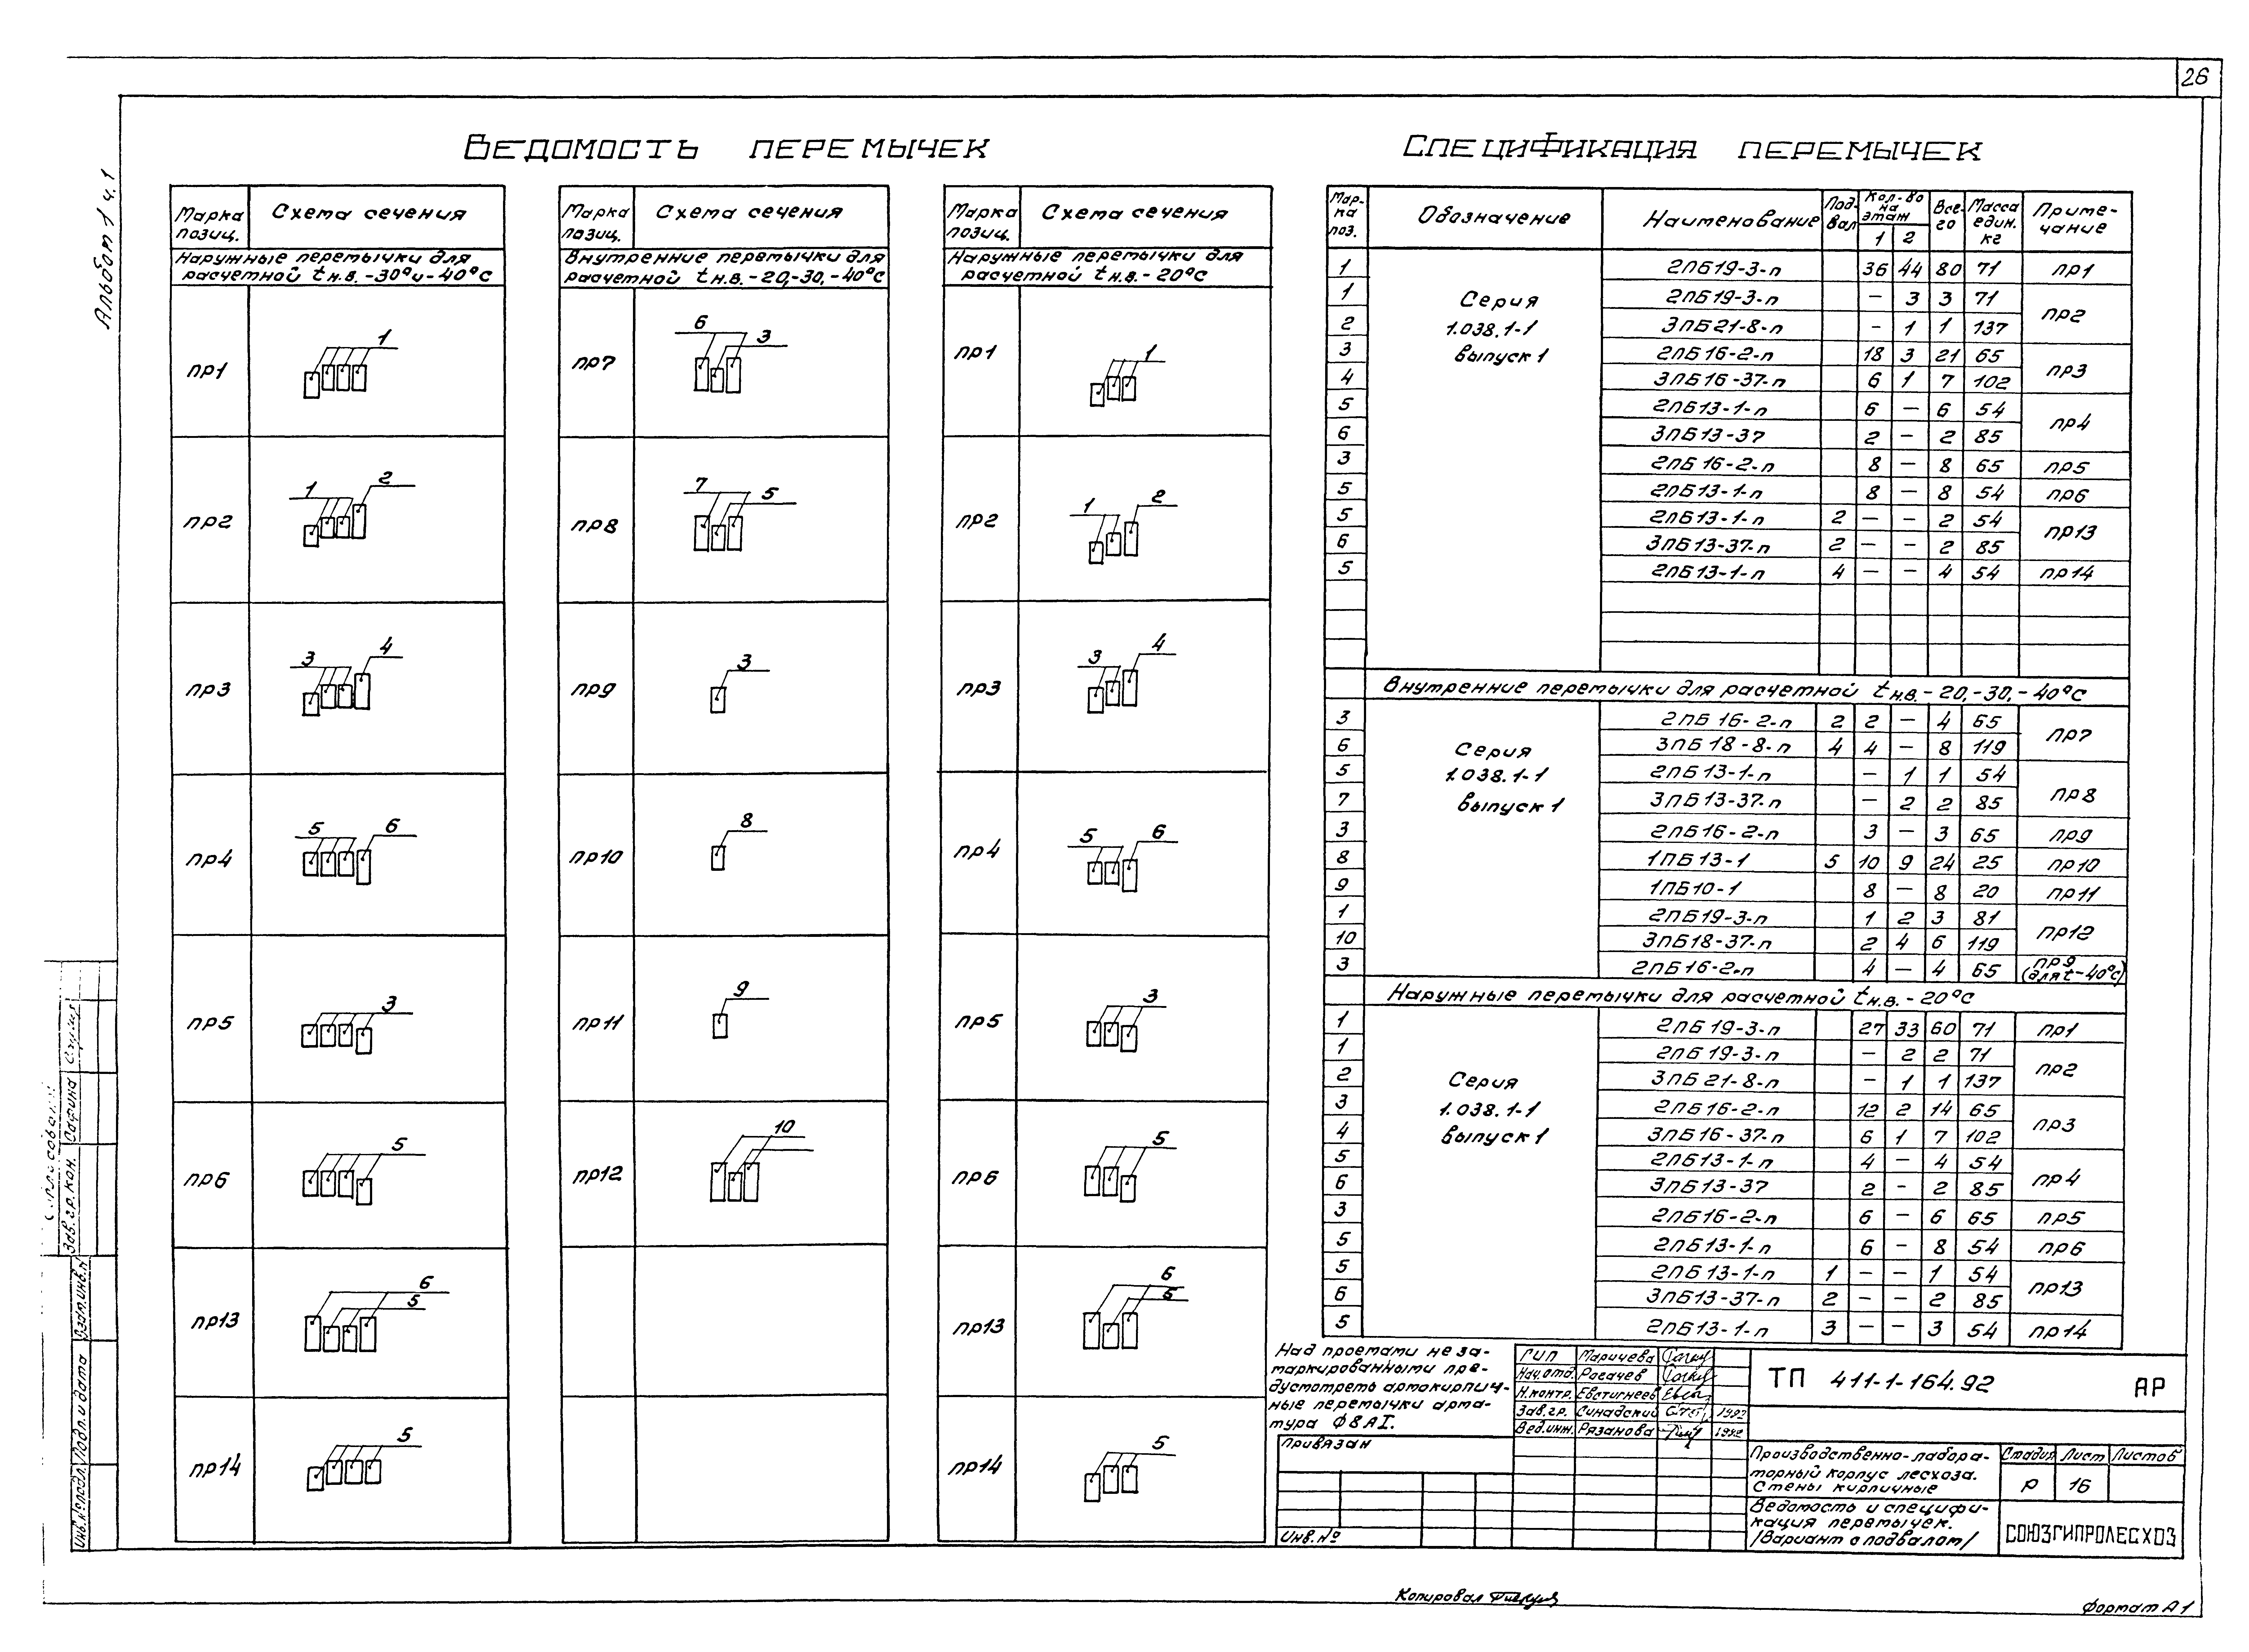 26
Альбом 1 ч.1
Ведомость перемычек
Спецификация перемычек
Марка позиц.
Схема сечения
Наружные перемычки для
расчетной tн.в. -30° и -40°С
пр1
1
пр2
1 2
пр3
3 4
пр4
5 6
пр5
3
пр6
5
пр13
6
5
пр14
5
Марка позиц.
Схема сечения
Внутренние перемычки для
расчетной tн.в. -20,-30,-40°С
пр7
6 3
пр8
7 5
пр9
3
пр10
8
пр11
9
пр12
10
Марка позиц.
Схема сечения
Наружные перемычки для
расчетной tн.в. -20°С
пр1
1
пр2
1 2
пр3
3 4
пр4
5 6
пр5
3
пр6
5
пр13
6
5
пр14
5
Мар-ка поз. Обозначение Наименование Под-вал Кол-во на этаж 1 2 Все-го Масса един. кг Приме-чание
Серия
1.038.1-1
выпуск 1
1 2ПБ19-3-п 36 44 80 71 пр1
1 2ПБ19-3-п – 3 3 71 пр2
2 3ПБ21-8-п – 1 1 137
3 2ПБ16-2-п 18 3 21 65 пр3
4 3ПБ16-37-п 6 1 7 102
5 2ПБ13-1-п 6 – 6 54 пр4
6 3ПБ13-37 2 – 2 85
3 2ПБ16-2-п 8 – 8 65 пр5
5 2ПБ13-1-п 8 – 8 54 пр6
5 2ПБ13-1-п 2 – – 2 54 пр13
6 3ПБ13-37-п 2 – – 2 85
5 2ПБ13-1-п 4 – – 4 54 пр14
Внутренние перемычки для расчетной tн.в. -20,-30,-40°С
Серия
1.038.1-1
выпуск 1
3 2ПБ16-2-п 2 2 – 4 65 пр7
6 3ПБ18-8-п 4 4 – 8 119
5 2ПБ13-1-п – 1 1 54 пр8
7 3ПБ13-37-п – 2 2 85
3 2ПБ16-2-п 3 – 3 65 пр9
8 1ПБ13-1 5 10 9 24 25 пр10
9 1ПБ10-1 8 – 8 20 пр11
1 2ПБ19-3-п 1 2 3 81 пр12
10 3ПБ18-37-п 2 4 6 119
3 2ПБ16-2-п 4 – 4 65 пр9 (для t-40°С)
Наружные перемычки для расчетной tн.в. -20°С
Серия
1.038.1-1
выпуск 1
1 2ПБ19-3-п 27 33 60 71 пр1
1 2ПБ19-3-п – 2 2 71 пр2
2 3ПБ21-8-п – 1 1 137
3 2ПБ16-2-п 12 2 14 65 пр3
4 3ПБ16-37-п 6 1 7 102
5 2ПБ13-1-п 4 – 4 54 пр4
6 3ПБ13-37 2 – 2 85
3 2ПБ16-2-п 6 – 6 65 пр5
5 2ПБ13-1-п 6 – 8 54 пр6
5 2ПБ13-1-п 1 – – 1 54 пр13
6 3ПБ13-37-п 2 – – 2 85
5 2ПБ13-1-п 3 – – 3 54 пр14
Над проемами не за-
маркированными пре-
дусмотреть армокирпич-
ные перемычки арма-
тура Ф8АI.
Привязан
Инв.№
ГИП Маричева
Нач.отд. Рогачев
Н.контр. Евстигнеев
Зав.гр. Синадский 1992
Вед.инж. Рязанова 1992
ТП 411-1-164.92 АР
Производственно-лабора-
торный корпус лесхоза.
Стены кирпичные
Стадия Лист Листов
Р 16
Ведомость и специфи-
кация перемычек.
/Вариант с подвалом/
СОЮЗГИПРОЛЕСХОЗ
Зав.гр.кон.
Инв.№подл. Подп. и дата Взам.инв.№
Копировал
Формат А1